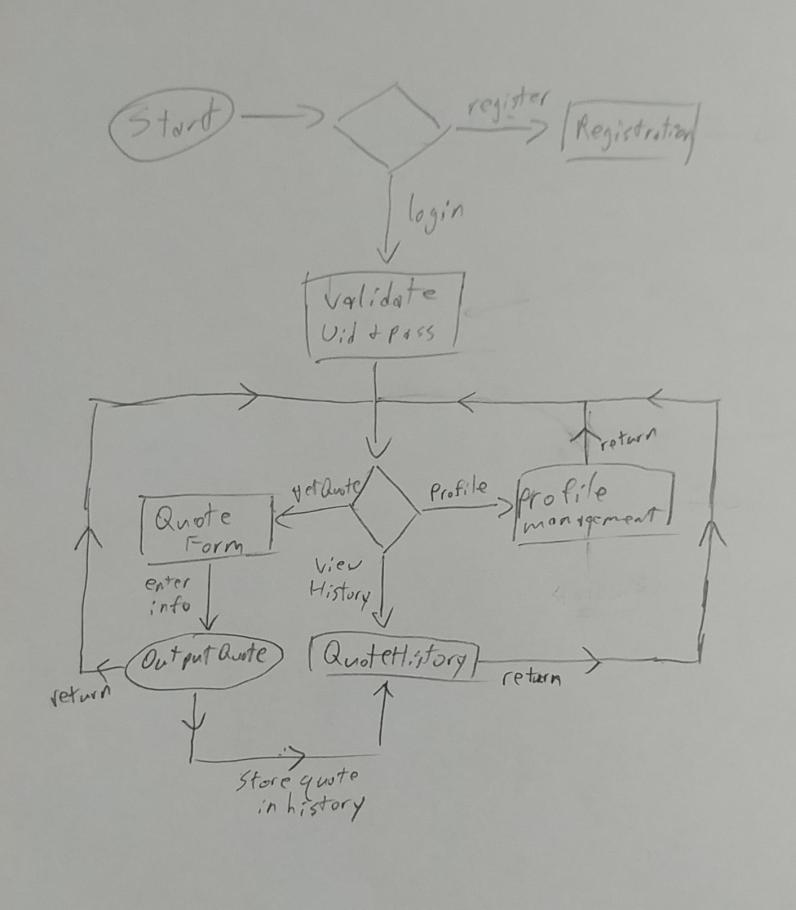 Start
register
Registration
login
Validate
Uid & Pass
return
getQuote
Profile
Profile
management
Quote
Form
View
History
enter
info
OutputQuote
QuoteHistory
return
return
Store quote
in history